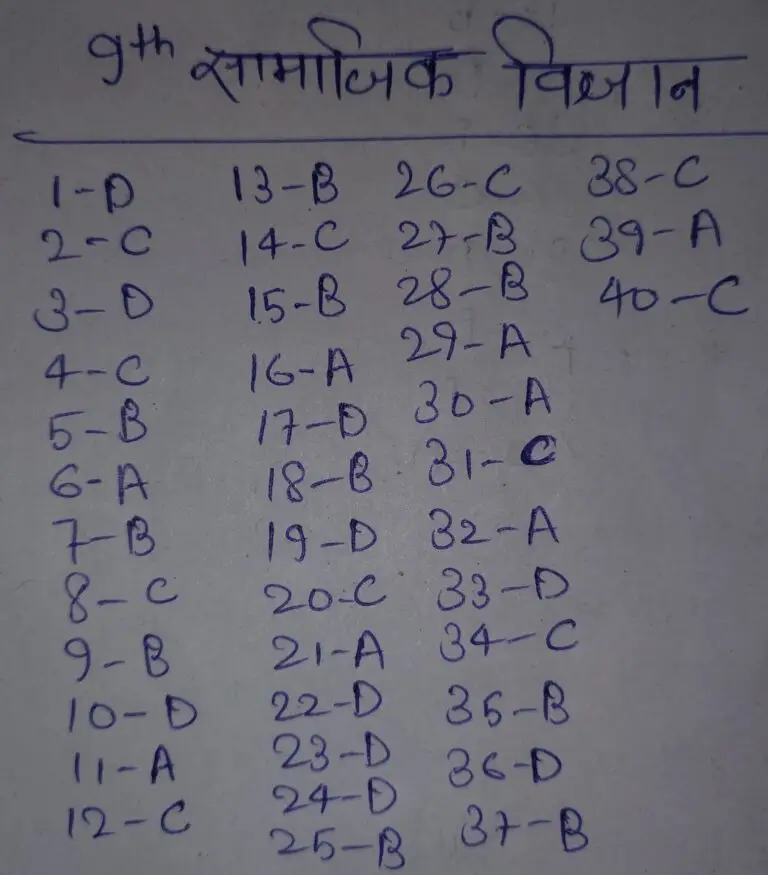 9th सामाजिक विज्ञान
1-D
2-C
3-D
4-C
5-B
6-A
7-B
8-C
9-B
10-D
11-A
12-C
13-B
14-C
15-B
16-A
17-D
18-B
19-D
20-C
21-A
22-D
23-D
24-D
25-B
26-C
27-B
28-B
29-A
30-A
31-C
32-A
33-D
34-C
35-B
36-D
37-B
38-C
39-A
40-C